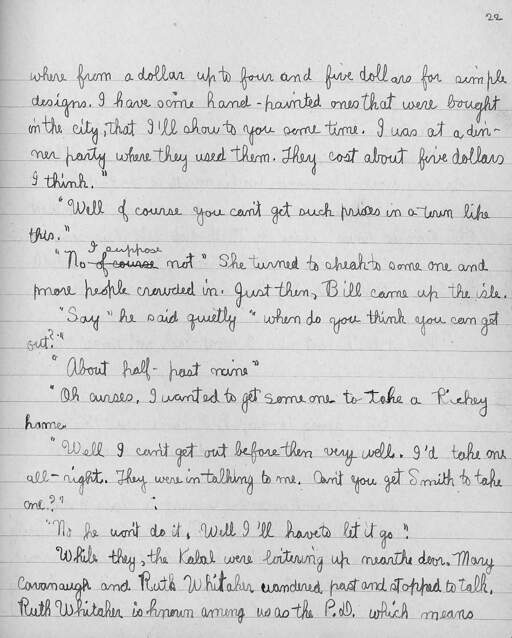 22
where from a dollar up to four and five dollars for simple
designs. I have some hand-painted ones that were bought
in the city, that I'll show to you some time. I was at a din-
ner party where they used them. They cost about five dollars
I think."
"Well of course you can't get such prices in a town like
this."
I suppose
"No of course not" She turned to speak to some one and
more people crowded in. Just then, Bill came up the isle.
"Say" he said quietly "when do you think you can get
out?"
"About half-past nine"
"Oh curses, I wanted to get some one to take a Richey
home.
"Well I can't get out before then very well. I'd take one
all-right. They were in talking to me. Can't you get Smith to take
one?"
"No he won't do it. Well I'll have to let it go".
While they, the Kabal were loitering up near the door. Mary
Cavanaugh and Ruth Whitaker wandered past and stopped to talk.
Ruth Whitaker is known among us as the P.D. which means